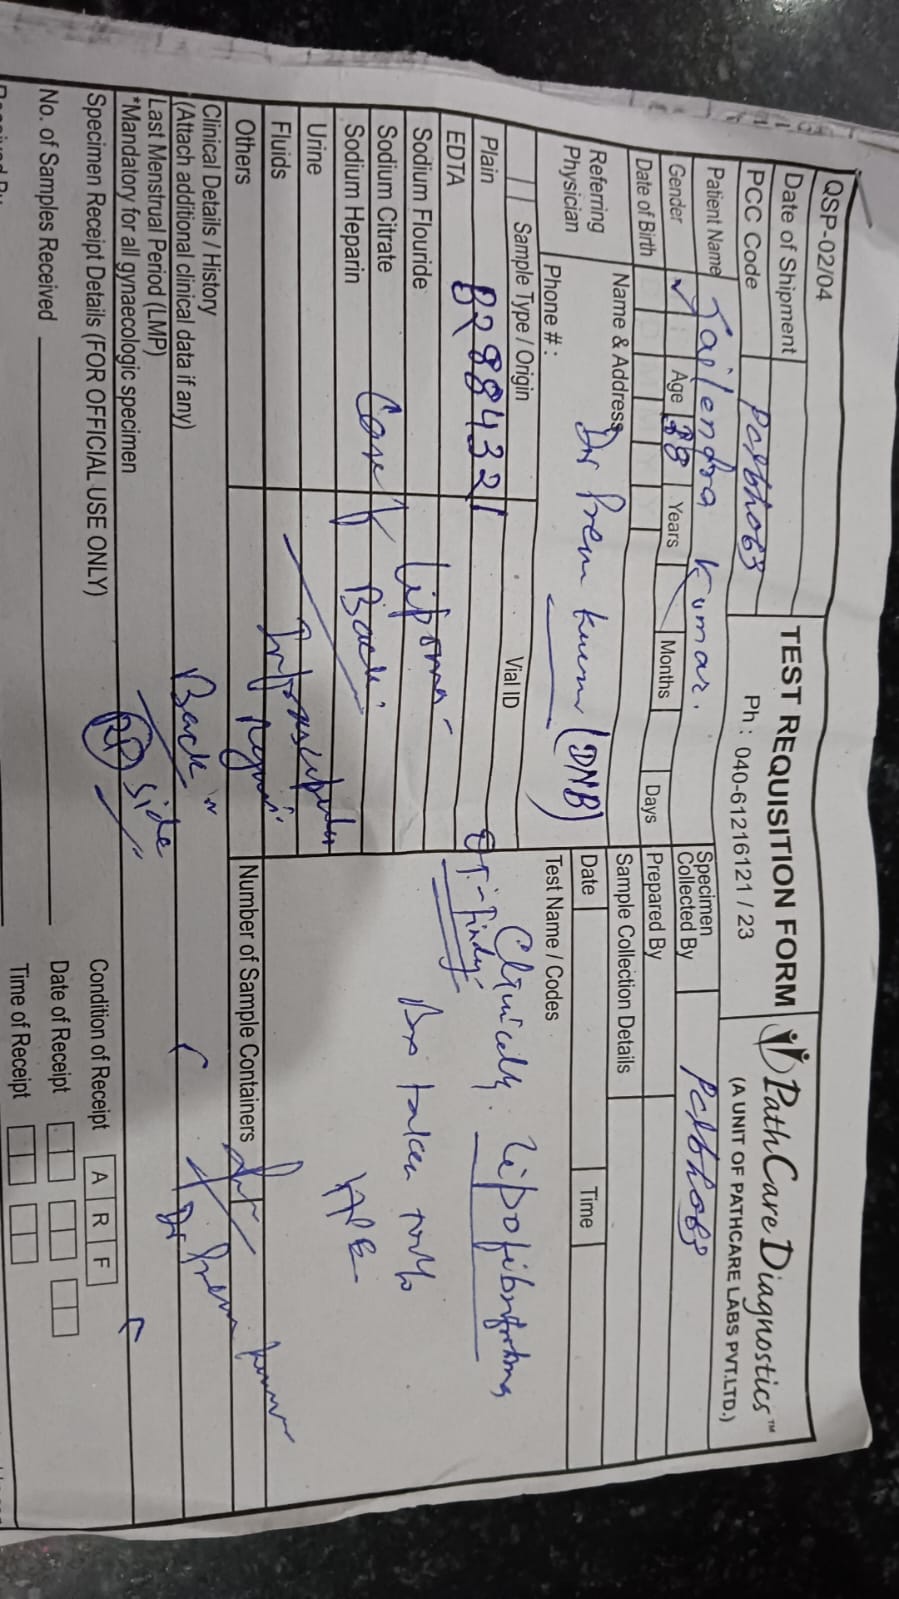 QSP-02/04
TEST REQUISITION FORM
Ph : 040-61216121 / 23
PathCare Diagnostics™
(A UNIT OF PATHCARE LABS PVT.LTD.)
Date of Shipment
PCC Code
Patient Name Kumar.
Gender ✓ Age 38 Years Months Days
Date of Birth
Specimen Collected By
Prepared By
Referring Physician
Name & Address Dr Prem Kumar (DNB)
Phone # :
Sample Collection Details
Date Time
Sample Type / Origin Vial ID
Test Name / Codes
Plain B2988432
EDTA
Sodium Flouride
Sodium Citrate
Sodium Heparin
Urine
Fluids
Others
Case of Lipoma
Back
Infrascapular
Region
Clinically Lipofibroma
OT-Findg
Bx taken
HPE
Number of Sample Containers
Clinical Details / History
(Attach additional clinical data if any)
Back
Last Menstrual Period (LMP)
*Mandatory for all gynaecologic specimen
side
Dr Prem Kumar
Specimen Receipt Details (FOR OFFICIAL USE ONLY)
Condition of Receipt A R F
No. of Samples Received
Date of Receipt
Time of Receipt